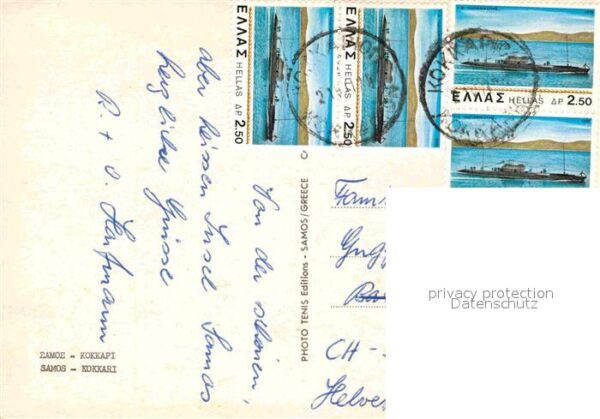 ΕΛΛΑΣ HELLAS ΔΡ 2.50
ΕΛΛΑΣ HELLAS ΔΡ 2.50
ΕΛΛΑΣ HELLAS ΔΡ 2.50
ΚΟΚΚΑΡΙ
Von der schönen,
aber heissen Insel Samos
herzliche Grüsse
R. + O. Hartmann
PHOTO TENIS Editions - SAMOS/GREECE
Fam
CH -
Helve
ΣΑΜΟΣ - ΚΟΚΚΑΡΙ
SAMOS - KOKKARI
privacy protection
Datenschutz